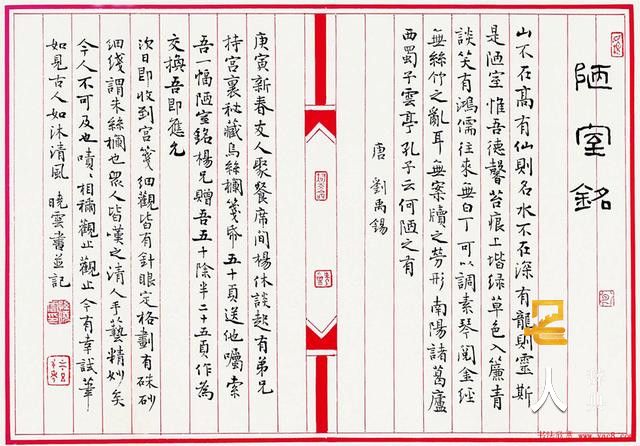 陋室銘
山不在高有仙則名水不在深有龍則靈斯
是陋室惟吾德馨苔痕上堦绿草色入簾青
談笑有鴻儒往來無白丁可以調素琴閱金經
無絲竹之亂耳無案牘之勞形南陽諸葛廬
西蜀子雲亭孔子云何陋之有
唐劉禹錫
庚寅新春友人聚餐席間楊休談起有弟兄
持宮裏秘藏烏絲欄箋紙五十頁送他囑索
吾一幅陋室銘楊兄贈吾五十除半二十五頁作為
交換吾即應允
次日即收到宮箋细觀皆有針眼定格劃有硃砂
细綫謂朱絲欄也衆人皆嘆之清人手藝精妙矣
今人不可及也嘖嘖相稱觀止觀止今有幸試筆
如見古人如沐清風 曉雲書並記
人